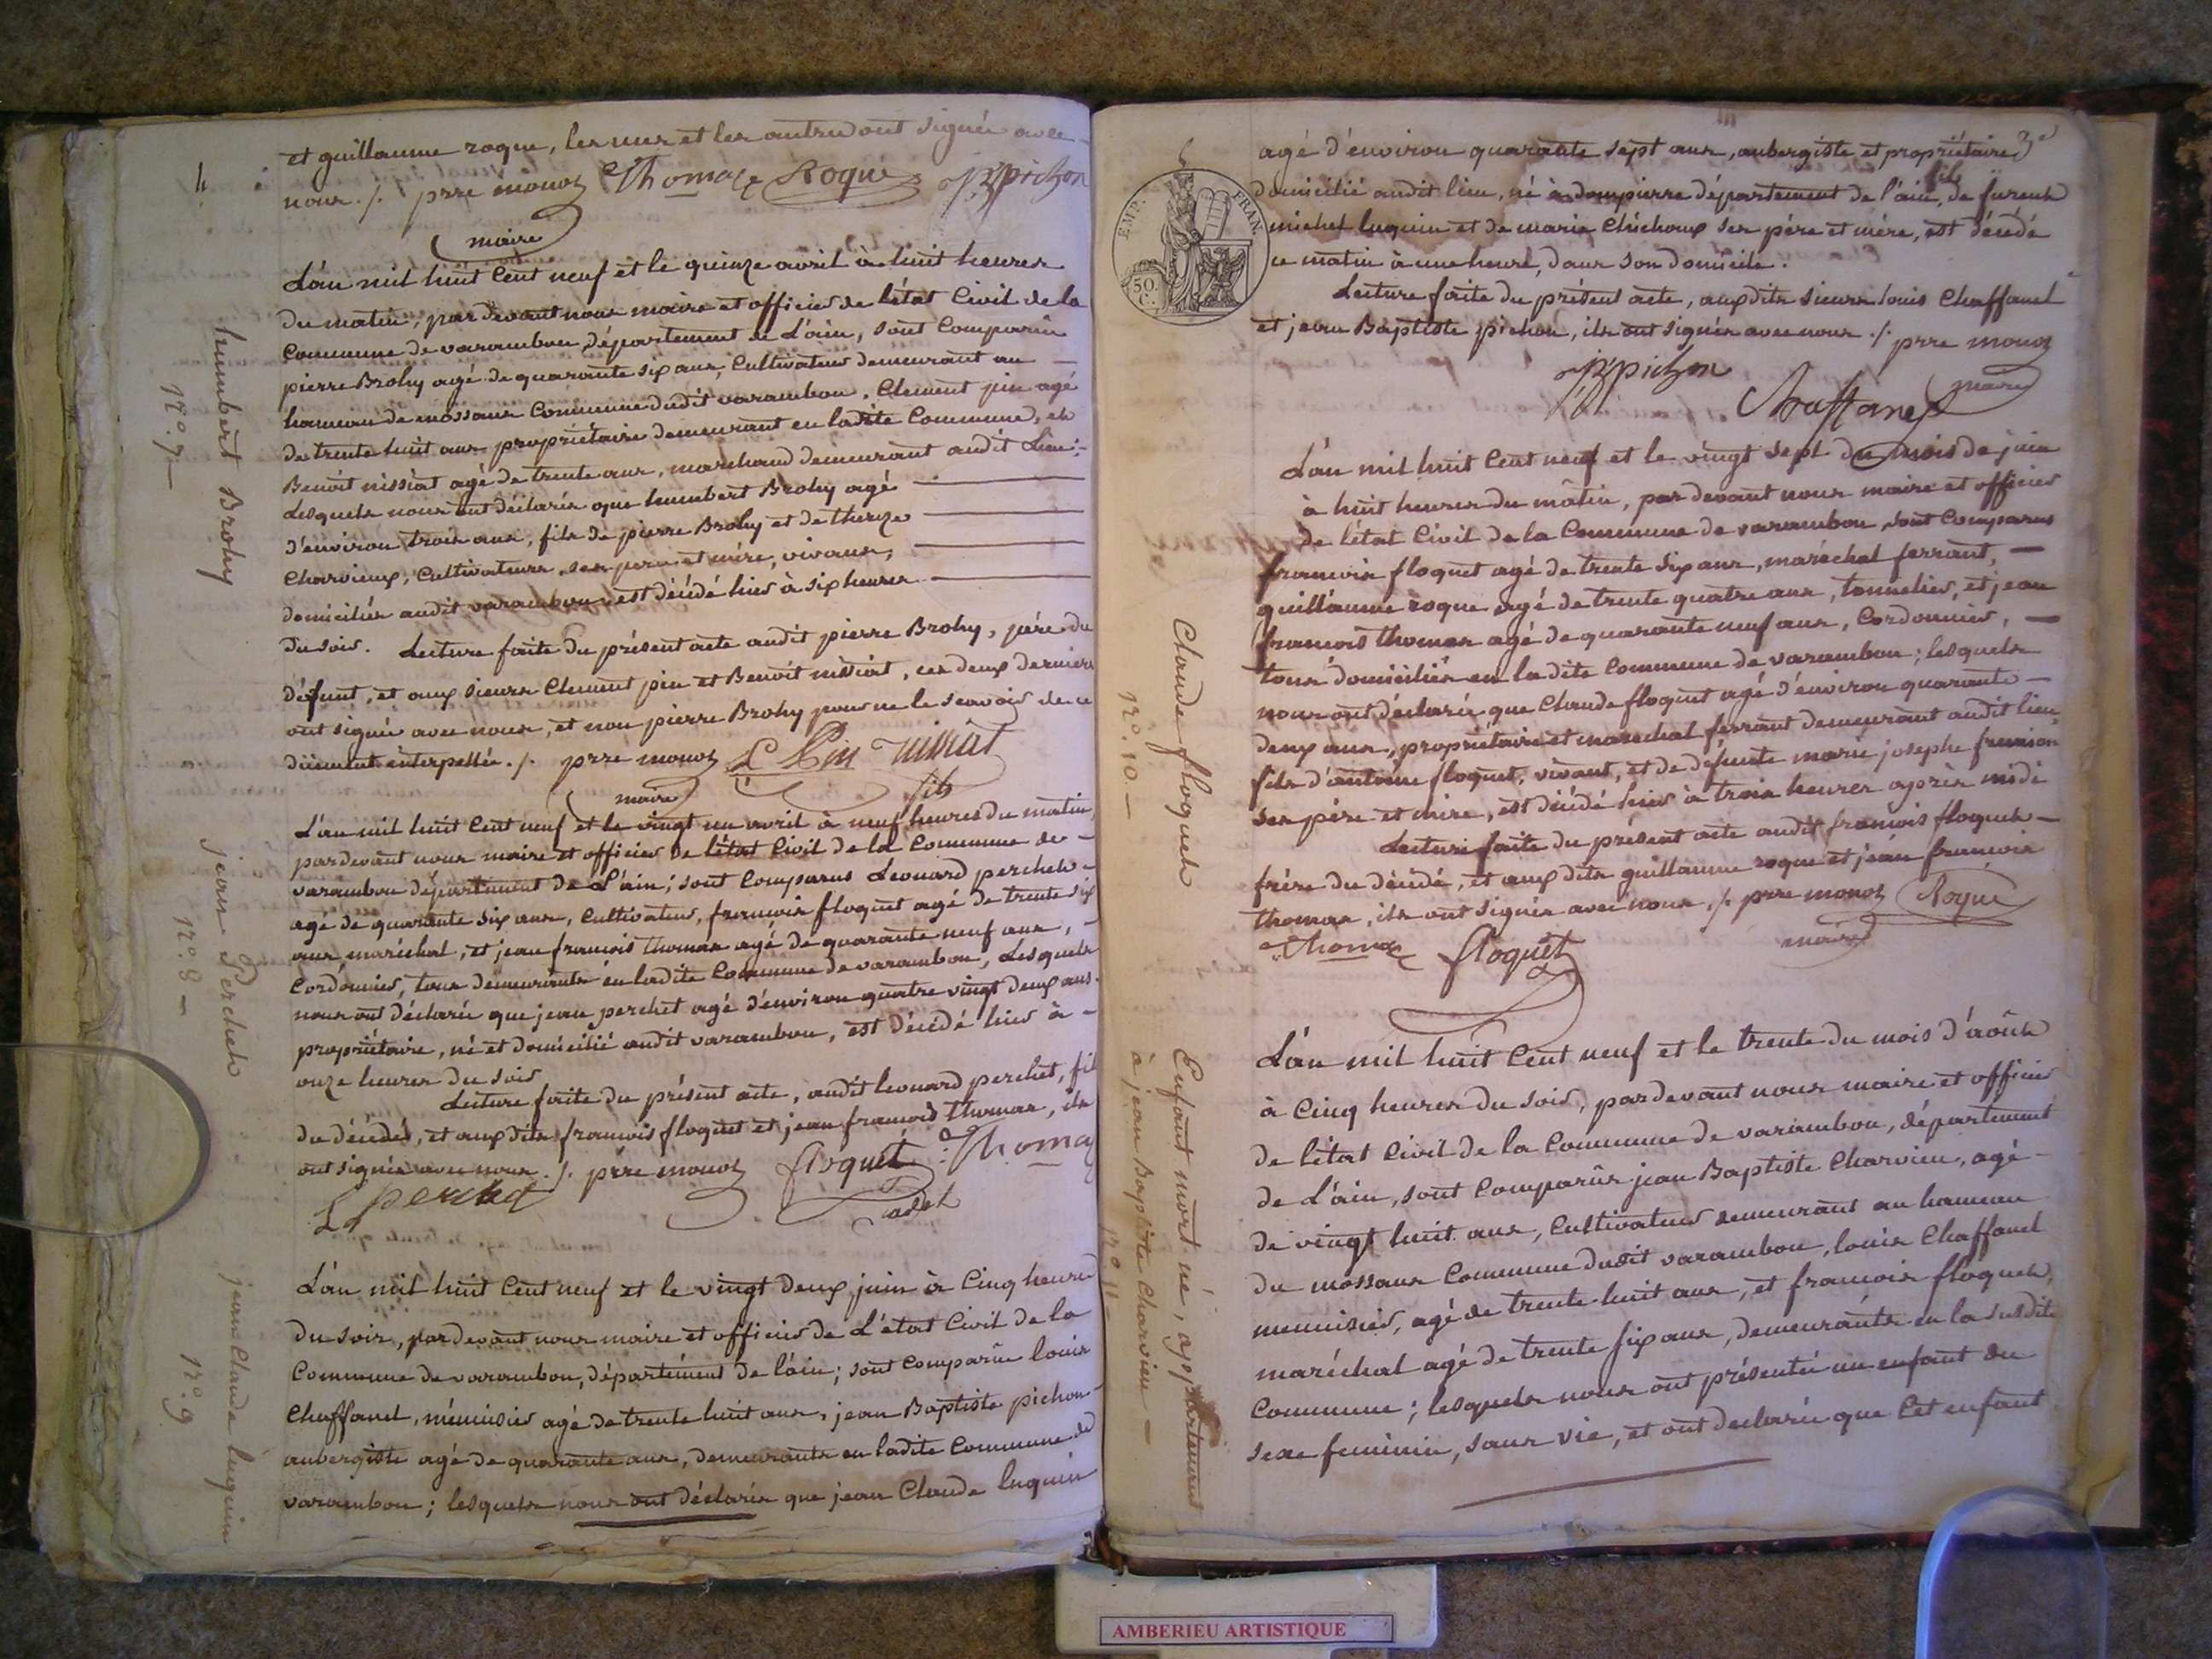 4.
et guillaume roque, les uns et les autres ont signés avec
nous ./. prre monoz Thomas Roque JB pichon
maire
humbert Brohy
n.o 7 –
L'an mil huit Cent neuf et le quinze avril à huit heures
du matin, par devant nous maire et officier de l'état Civil de la
Commune de varambon, département de L'ain, sont Comparûs
pierre Brohy agé de quarante six ans, Cultivateur demeurant au
hameau de mossans Commune dudit varambon, Clement pin agé
de trente huit ans propriétaire demeurant en ladite Commune, et
Benoit nissiat agé de trente ans, marchand demeurant audit Lieu;
Lesquels nous ont déclarés que humbert Brohy agé
d'environ trois ans, fils de pierre Brohy et de therese
Charvieux, Cultivateurs, ses pere et mére, vivans,
domiciliés audit varambon est décédé hier à six heures
du soir. Lecture faite du présent acte audit pierre Brohy, pére du
défunt, et aux sieurs Clement pin et Benoit nissiat, ces deux derniers
ont signés avec nous, et non pierre Brohy pour ne le scavoir de ce
duement interpellé ./. prre monoz C Pin nissiat
maire fils
jean Perchet
n.o 8 –
L'an mil huit Cent neuf et le vingt un avril à neuf heures du matin,
pardevant nous maire et officier de l'état Civil de la Commune de
varambon département de L'ain; sont Comparus Leonard perchet
agé de quarante six ans, Cultivateur, francois floquet agé de trente six
ans, maréchal, et jean francois thomas agé de quarante neuf ans,
Cordonnier, tous demeurants en ladite Commune de varambon, Lesquels
nous ont déclarés que jean perchet agé d'environ quatre vingt deux ans
propriétaire, né et domicilié audit varambon, est décédé hier à
onze heures du soir
Lecture faite du présent acte, audit leonard perchet, fils
du décédé, et aux dits francois floquet et jean francois thomas, ils
ont signés avec nous ./. prre monoz floquet Thomas
L perchet cadet
jean Claude luquin
n.o 9
L'an mil huit Cent neuf et le vingt deux juin à Cinq heures
du soir, pardevant nous maire et officier de L'état Civil de la
Commune de varambon, département de l'ain; sont Comparûs louis
Chaffanel, ménuisier agé de trente huit ans, jean Baptiste pichon
aubergiste agé de quarante ans, demeurants en ladite Commune de
varambon; lesquels nous ont déclarés que jean Claude luquin
3e
EMP. FRAN.
50.
C.
agé d'énviron quarante sept ans, aubergiste et propriétaire
domicilié audit lieu, né à dompierre département de l'ain, fils de furent
michel luquin et de marie Chichoux ses pére et mére, est décédé
ce matin à une heure, dans son domicile.
Lecture faite du présent acte, aux dits sieurs louis Chaffanel
et jean Baptiste pichon, ils ont signés avec nous ./. prre monoz
JB pichon maire
Chaffanel
Claude floquet
n.o 10 –
L'an mil huit Cent neuf et le vingt sept du mois de juin
à huit heures du mâtin, par devant nous maire et officier
de l'état Civil de la Commune de varambon, sont Comparus
francois floquet agé de trente six ans, maréchal ferrant,
guillaume roque agé de trente quatre ans, tonnelier, et jean
francois thomas agé de quarante neuf ans, Cordonnier,
tous domiciliés en la dite Commune de varambon; lesquels
nous ont déclarés que Claude floquet agé d'environ quarante
deux ans, propriétaire et marechal ferrant demeurant audit lieu,
fils d'antoine floquet, vivant, et de défunte marie josephe
ses pére et mére, est décédé hier à trois heures après midi
Lecture faite du présent acte audit francois floquet
frére du décédé, et aux dits guillaume roque et jean francois
thomas, ils ont signés avec nous ./. prre monoz Roque
Thomas floquet maire
Enfant mort né, appartenant
à jean Baptiste Charvieu –
n.o 11 –
L'an mil huit Cent neuf et le trente du mois d'août
à Cinq heures du soir, pardevant nous maire et officier
de l'état Civil de la Commune de varambon, département
de L'ain, sont Comparûs jean Baptiste Charvieu, agé
de vingt huit ans, Cultivateur demeurant au hameau
du mossans Commune dudit varambon, louis Chaffanel
menuisier, agé de trente huit ans, et francois floquet,
maréchal agé de trente six ans, demeurants en la susdite
Commune; lesquels nous ont présenté un enfant du
sexe feminin, sans vie, et ont declarés que Cet enfant
AMBERIEU ARTISTIQUE